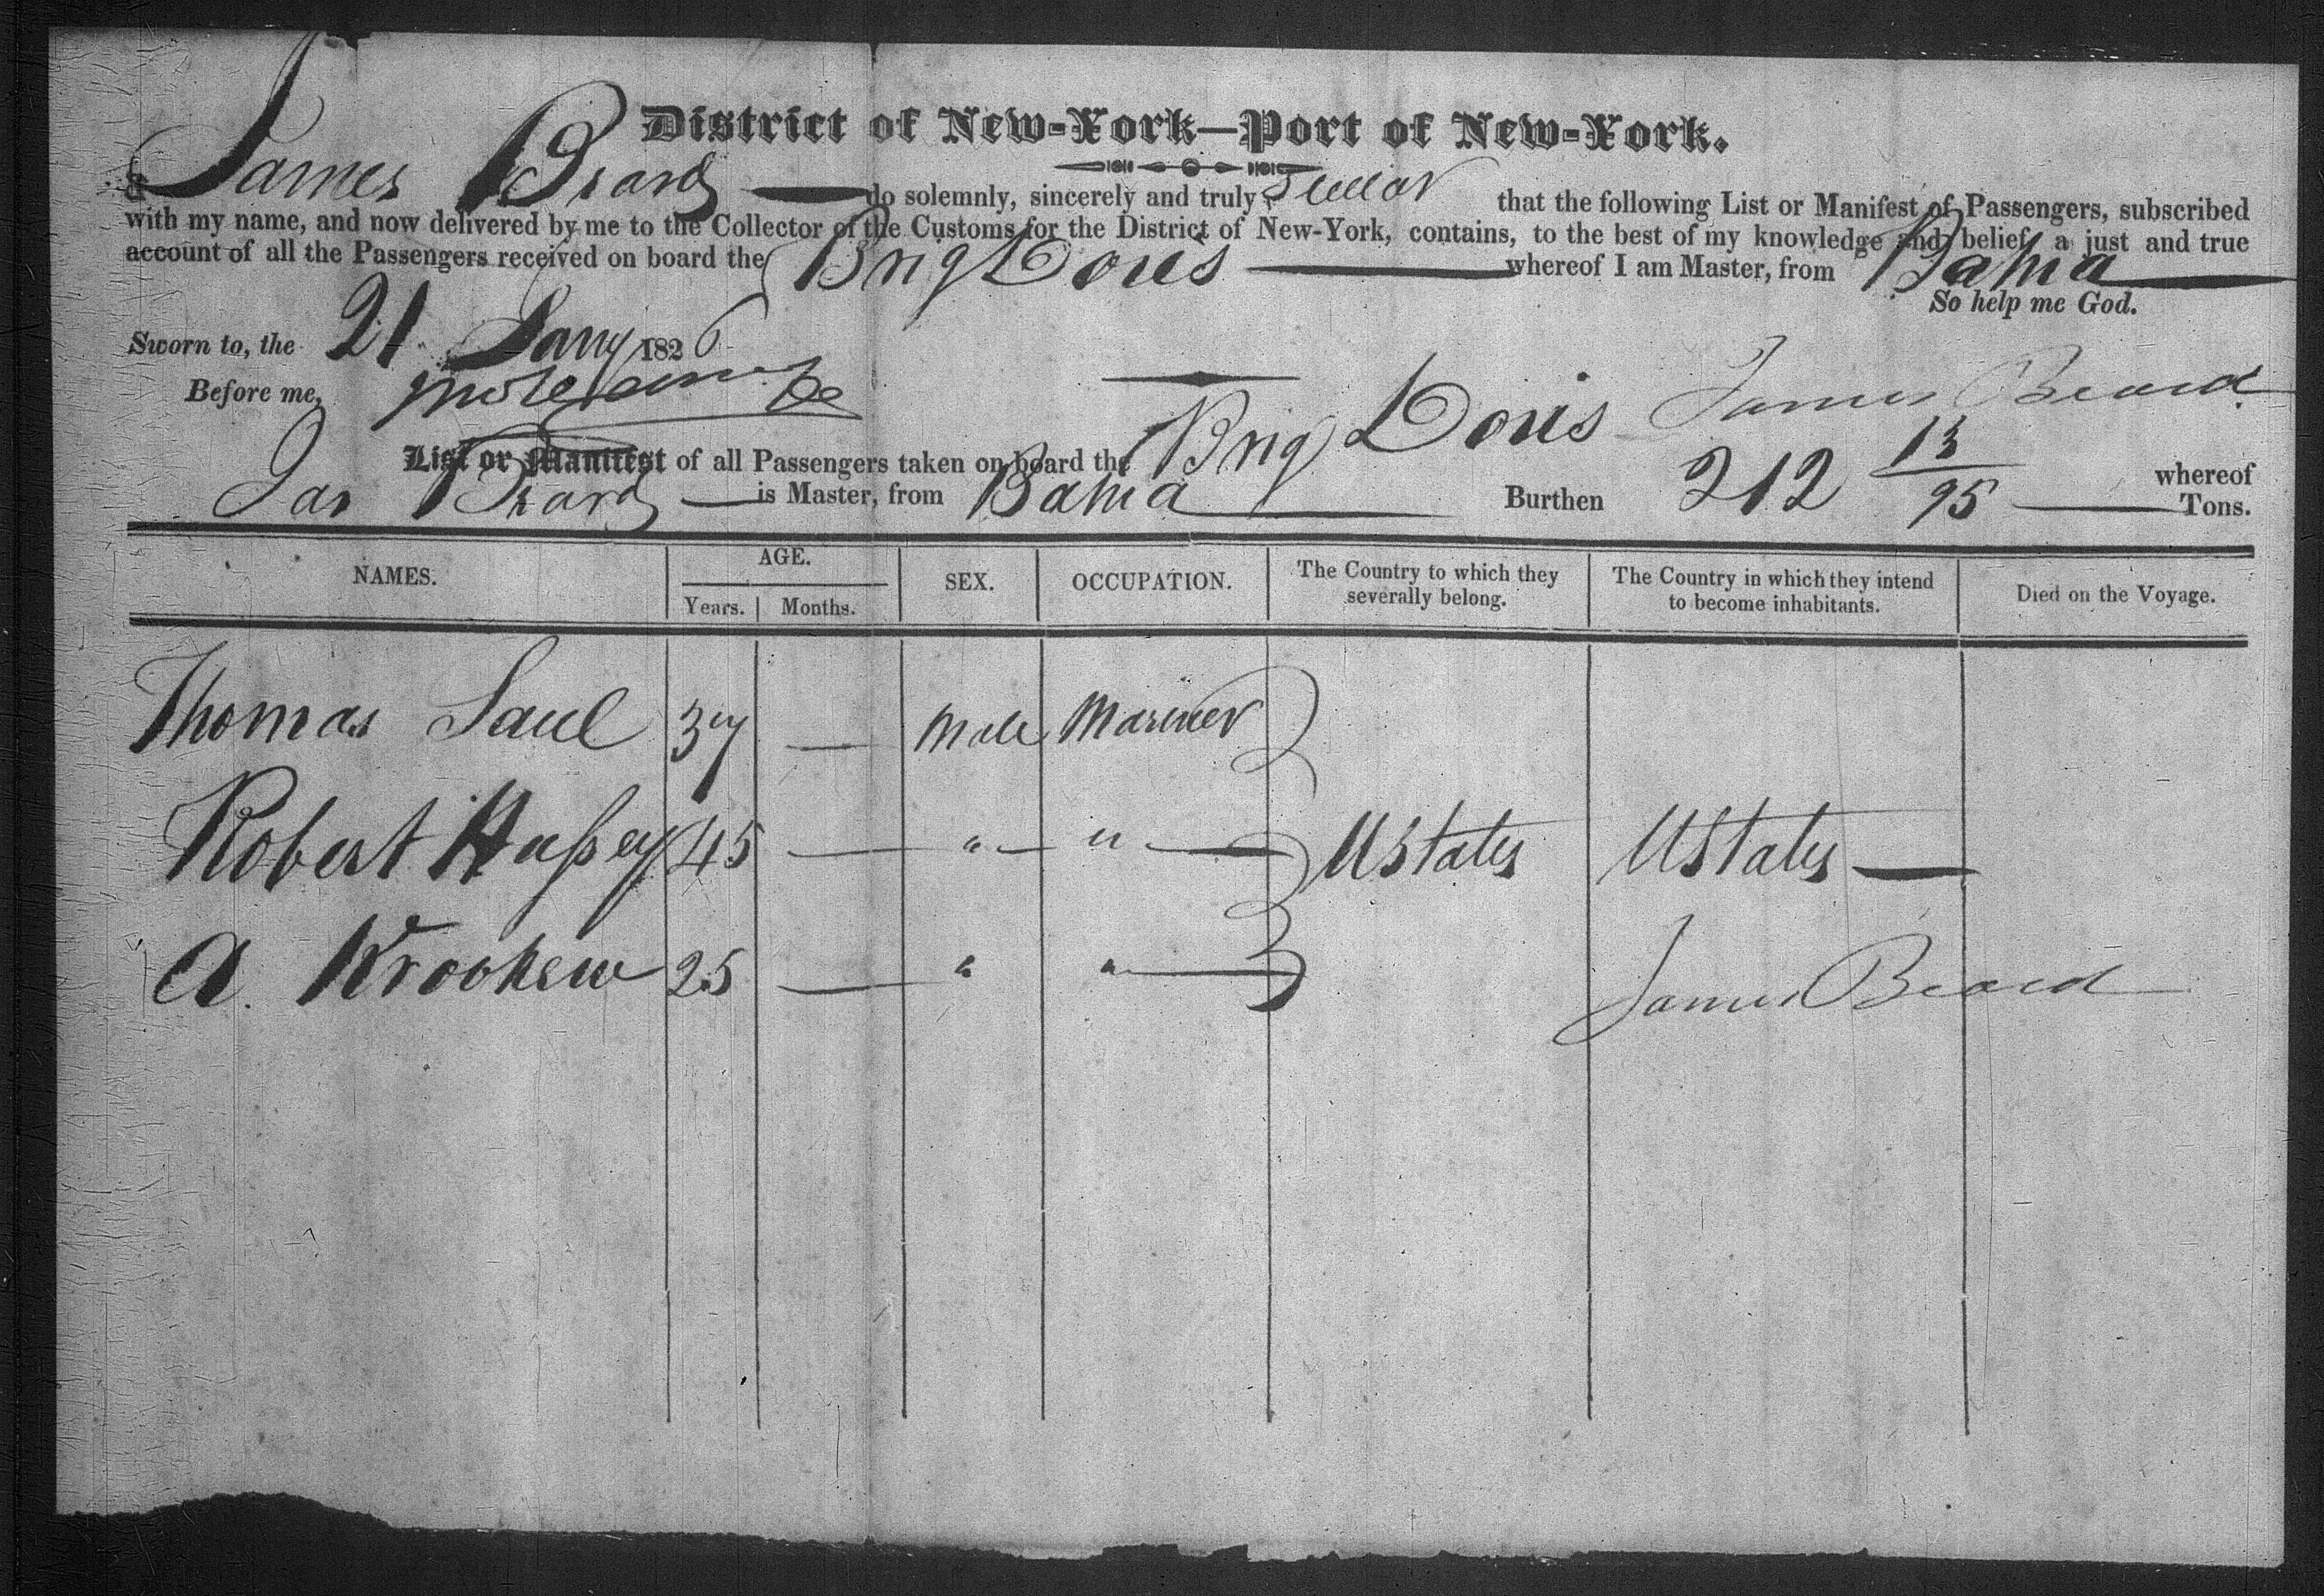 District of New-York—Port of New-York.
I James Beard do solemnly, sincerely and truly swear that the following List or Manifest of Passengers, subscribed
with my name, and now delivered by me to the Collector of the Customs for the District of New-York, contains, to the best of my knowledge and belief, a just and true
account of all the Passengers received on board the Brig Doris whereof I am Master, from Bahia
So help me God.
Sworn to, the 21 Jany 1826
Before me,
James Beard
List or Manifest of all Passengers taken on board the Brig Doris whereof
Jas Beard is Master, from Bahia Burthen 212 13/95 Tons.
NAMES. AGE. Years. Months. SEX. OCCUPATION. The Country to which they severally belong. The Country in which they intend to become inhabitants. Died on the Voyage.
Thomas Saul 37 — Male Mariner
Robert Hussey 45 — " " UStates UStates —
A. 25 — " "
James Beard